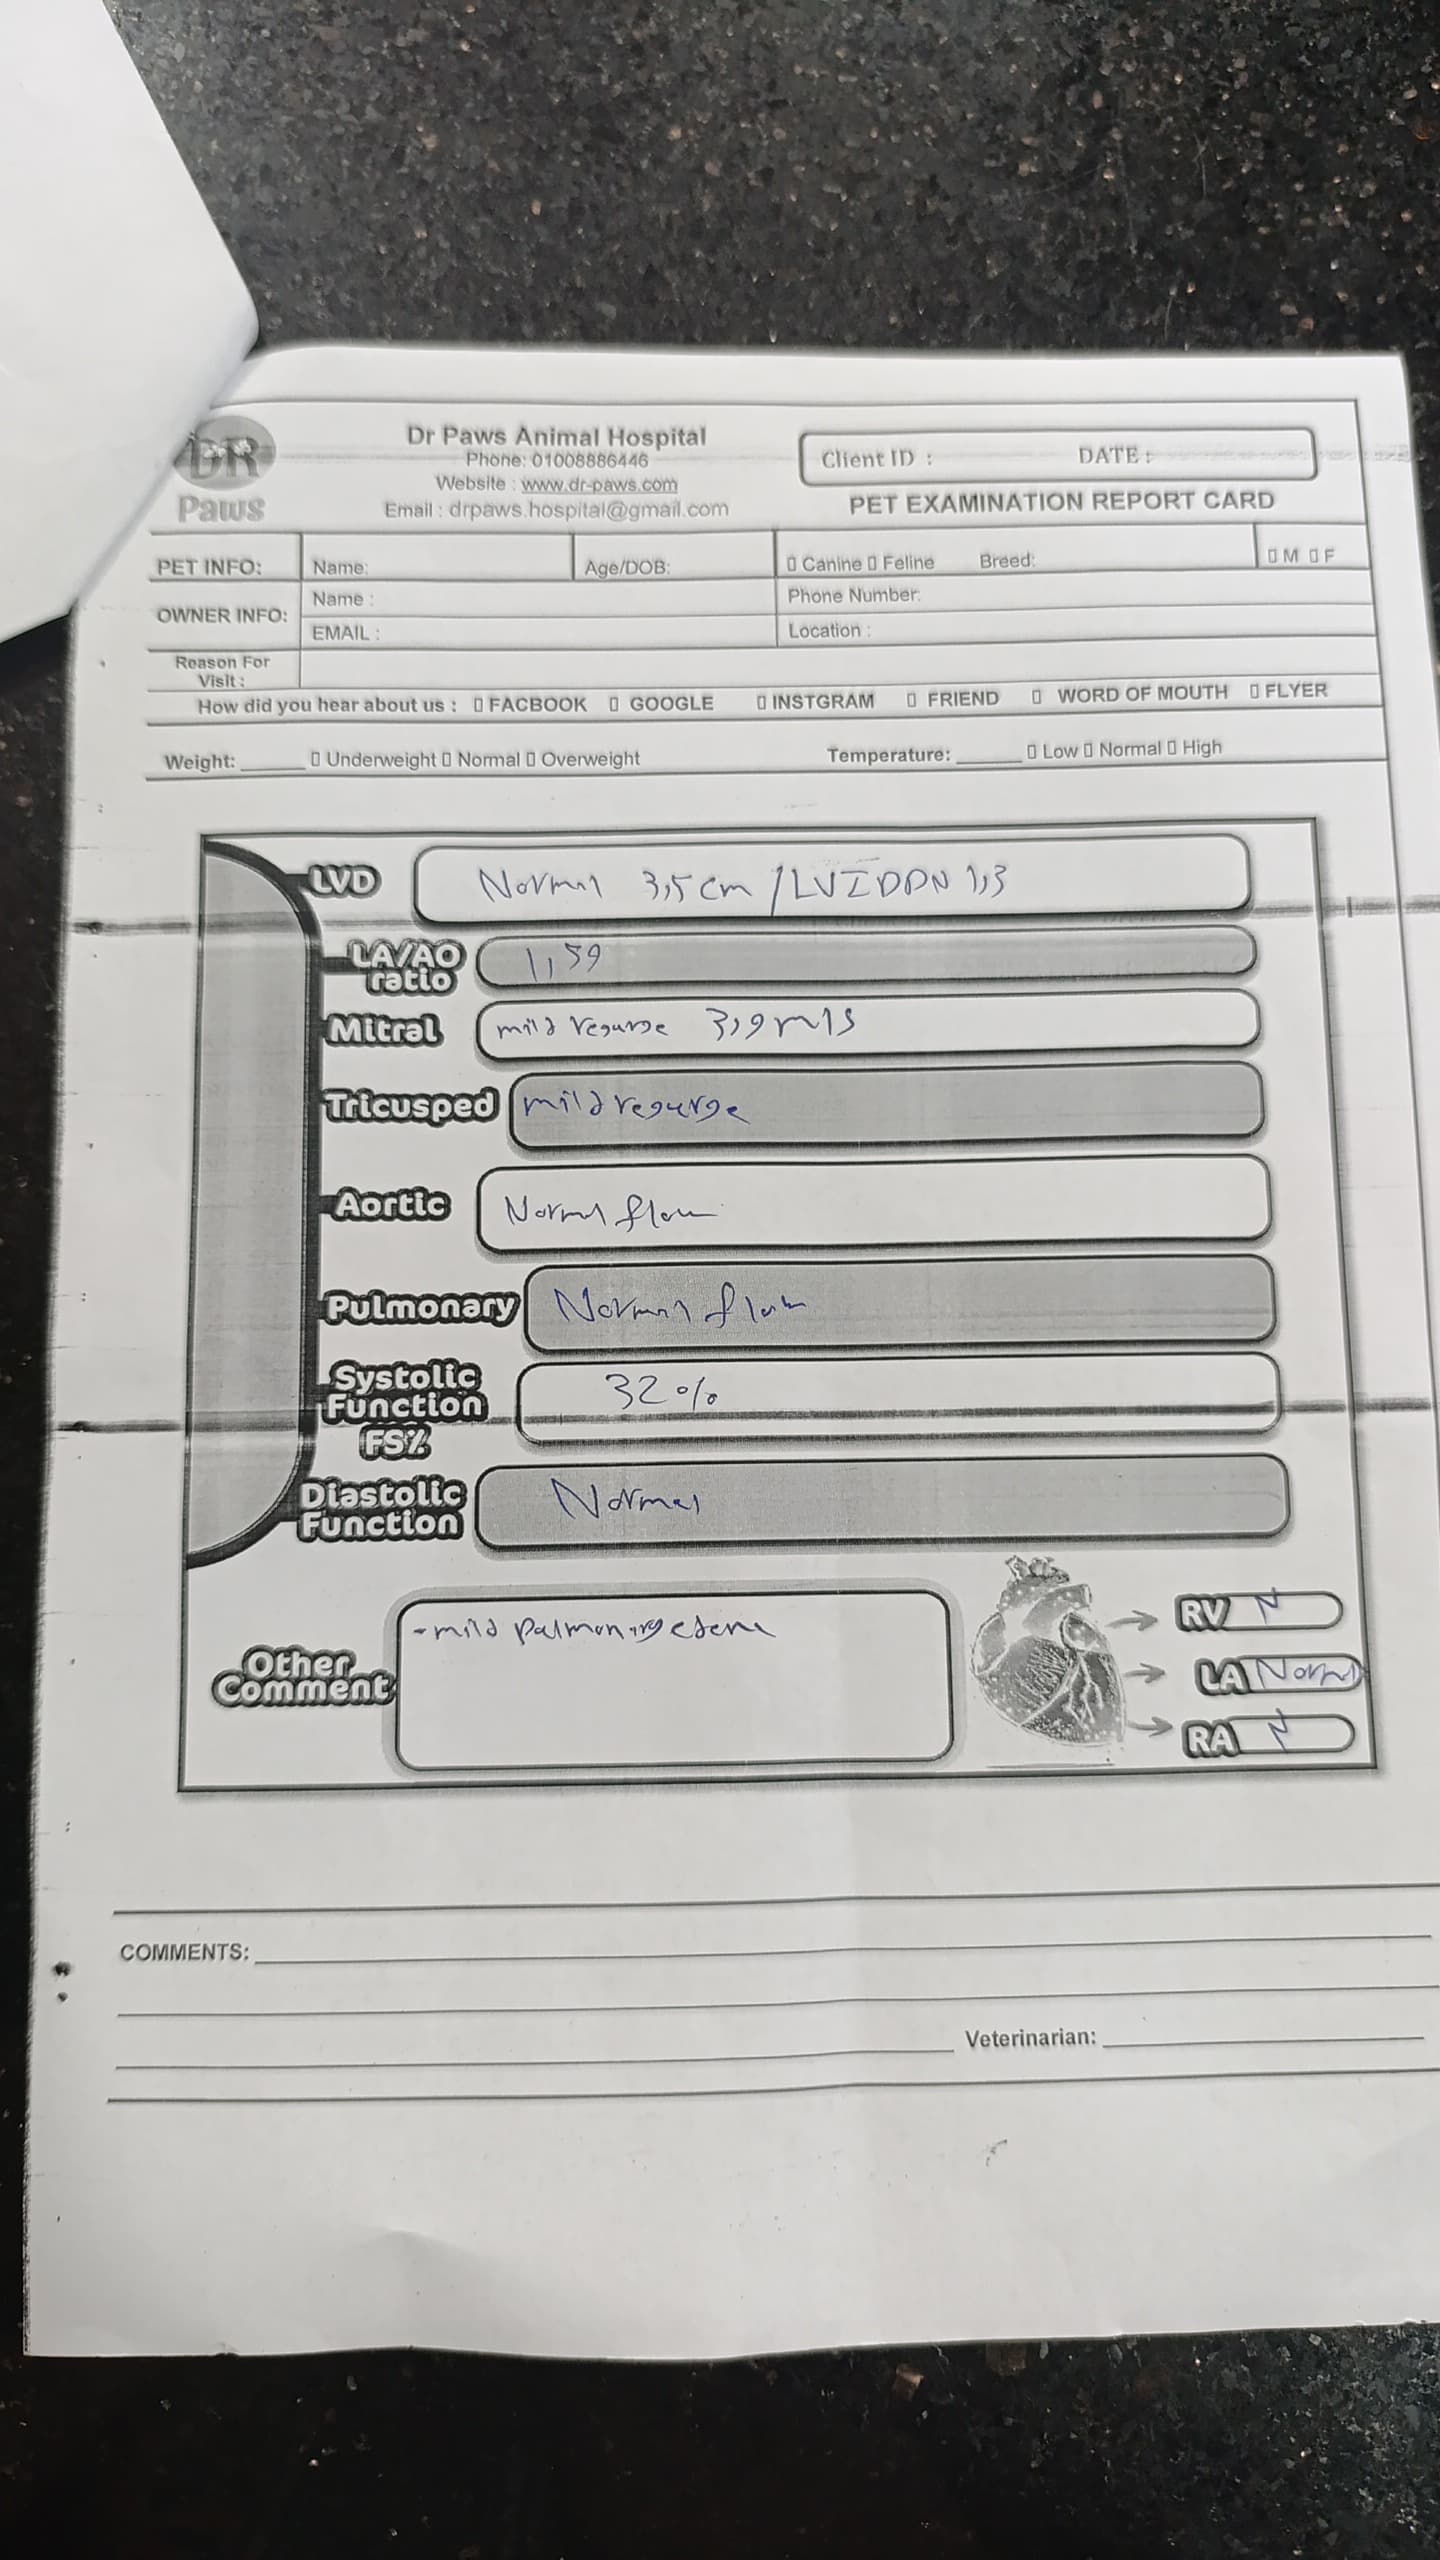 DR
Paws
Dr Paws Animal Hospital
Phone: 01008886446
Website : www.dr-paws.com
Email : drpaws.hospital@gmail.com
Client ID : DATE :
PET EXAMINATION REPORT CARD
PET INFO: Name: Age/DOB: Canine Feline Breed: M F
OWNER INFO: Name : Phone Number:
EMAIL : Location :
Reason For
Visit :
How did you hear about us : FACBOOK GOOGLE INSTGRAM FRIEND WORD OF MOUTH FLYER
Weight: Underweight Normal Overweight Temperature: Low Normal High
LVD Normal 3,5 cm / LVIDDN 1,3
LA/AO ratio 1,59
Mitral mild regurge 3,9 m/s
Tricusped mild regurge
Aortic Normal flow
Pulmonary Normal flow
Systolic Function FS% 32%
Diastolic Function Normal
Other Comment - mild pulmonary edema
RV N
LA Normal
RA N
COMMENTS:
Veterinarian: